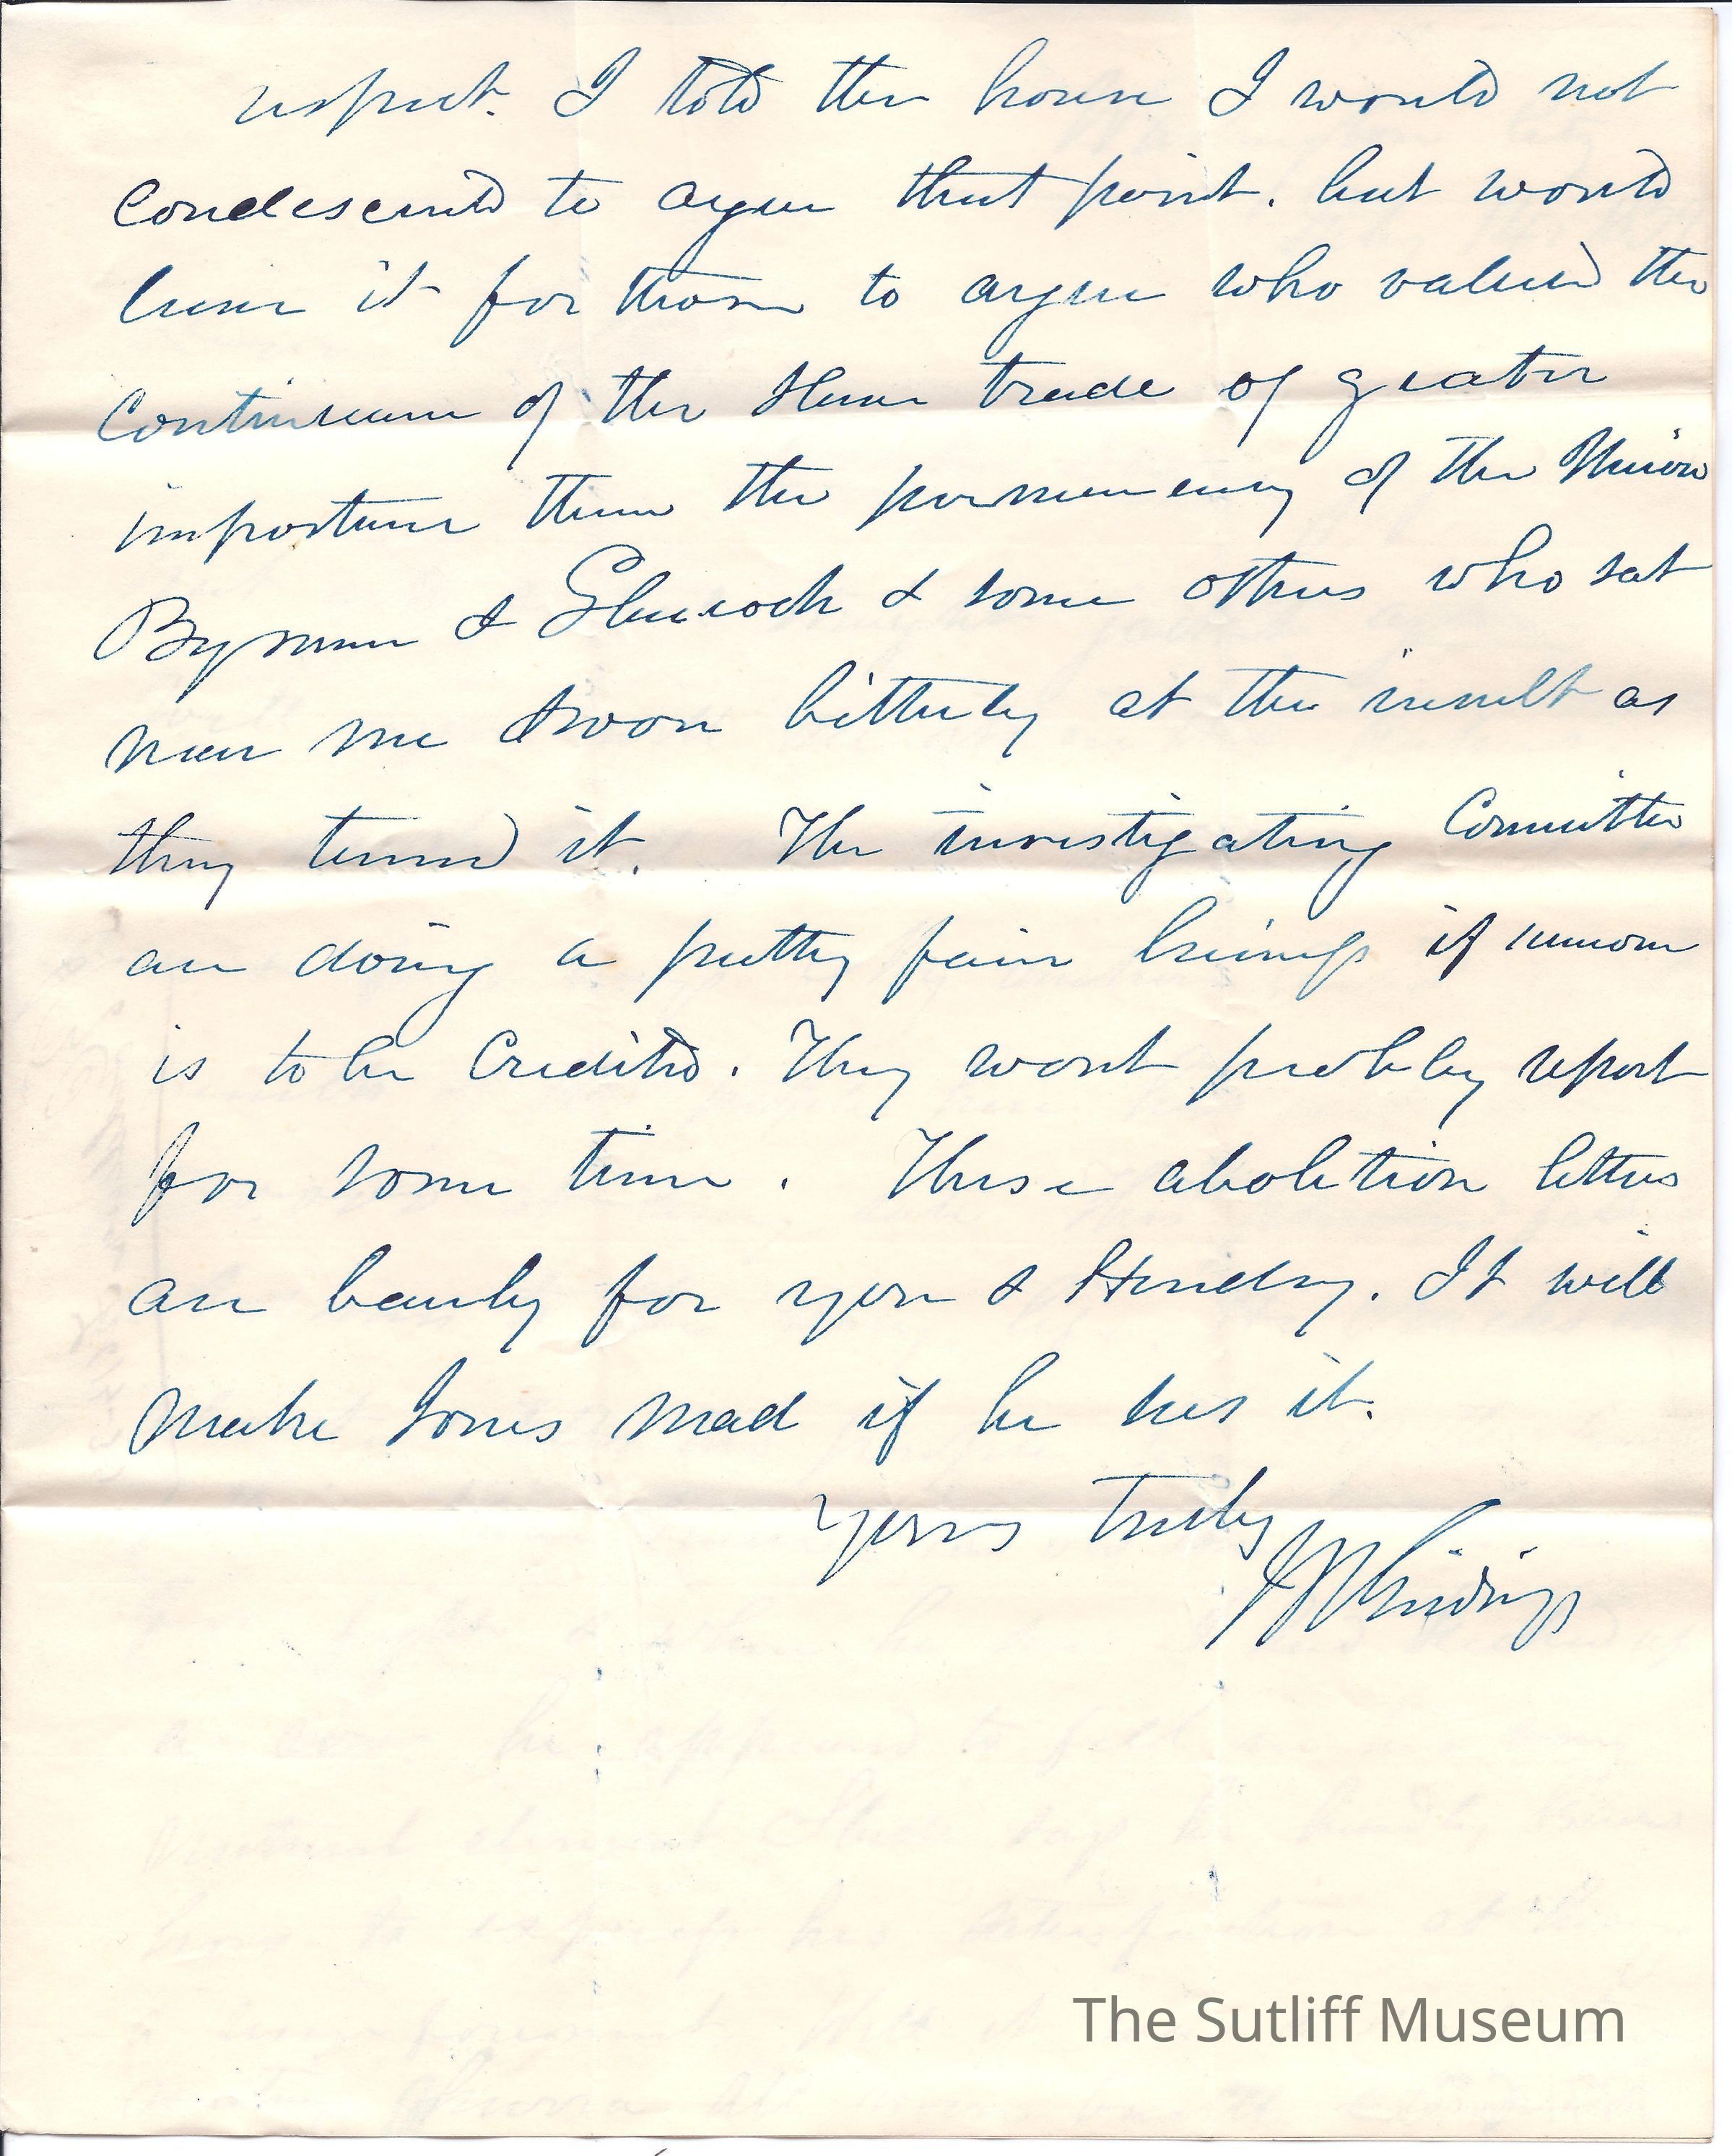 respect. I told the house I would not
condescend to argue that point. but would
leave it for those to argue who valued the
continuance of the slave trade of greater
importance than the permanency of the Union
Bynum & & some others who sat
near me swore bitterly at the result as
they termed it. The investigating Committee
are doing a pretty fair business if rumor
is to be Credited. They wont probbly report
for some time. These abolition letters
are beauty for you & Hendry. It will
make Jones mad if he sees it.
Yours truly
J R Giddings
The Sutliff Museum